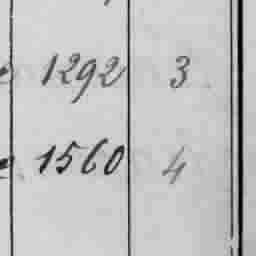 1292 3
1560 4